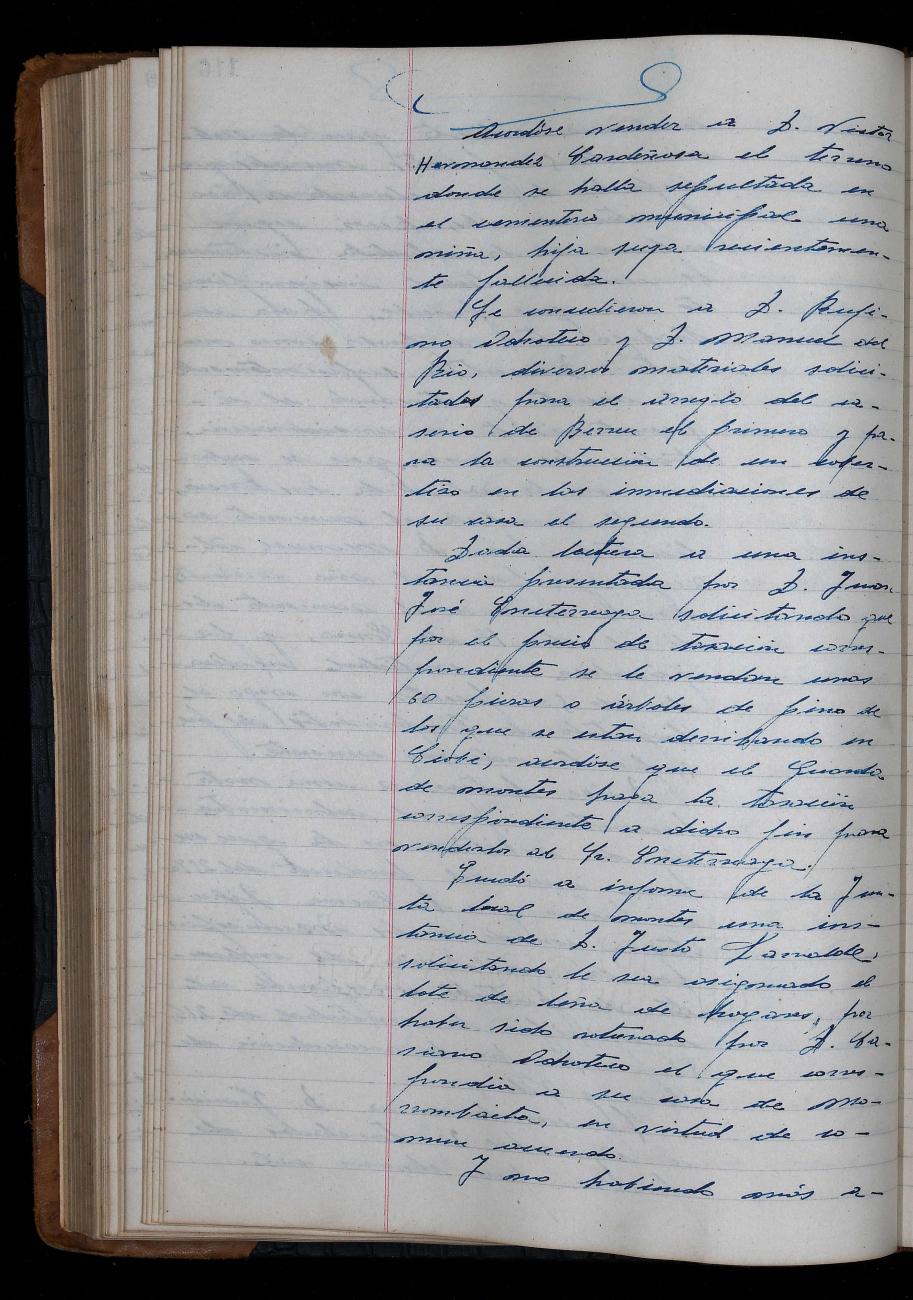 Acordóse vender a D. Victor
Hernandez Cardeñosa el terreno
donde se halla sepultada en
el cementerio municipal una
niña, hija suya recientemen-
te fallecida.
Se concedieron a D. Rufi-
no Ochoteco y D. Manuel del
Rio, diversos materiales solici-
tados para el arreglo del ca-
serio de Bereu el primero y pa-
ra la construcción de un cober-
tizo en las inmediaciones de
su casa el segundo.
Dada lectura a una ins-
tancia presentada por D. Juan
José Eneterreaga solicitando que
por el precio de tasación corres-
pondiente se le vendan unas
60 piezas o árboles de pino de
los que se estan derribando en
acordóse que el Guarda
de montes haga la tasación
correspondiente a dicho fin para
venderlos al Sr. Eneterreaga.
Quedó a informe de la Jun-
ta local de montes una ins-
tancia de D. Justo Larralde,
solicitando le sea asignado el
lote de leña de hogares, por
haber sido retirado por D. Ca-
siano Ochoteco el que corres-
pondia a su casa de
en virtud de co-
mun acuerdo.
Y no habiendo más a-